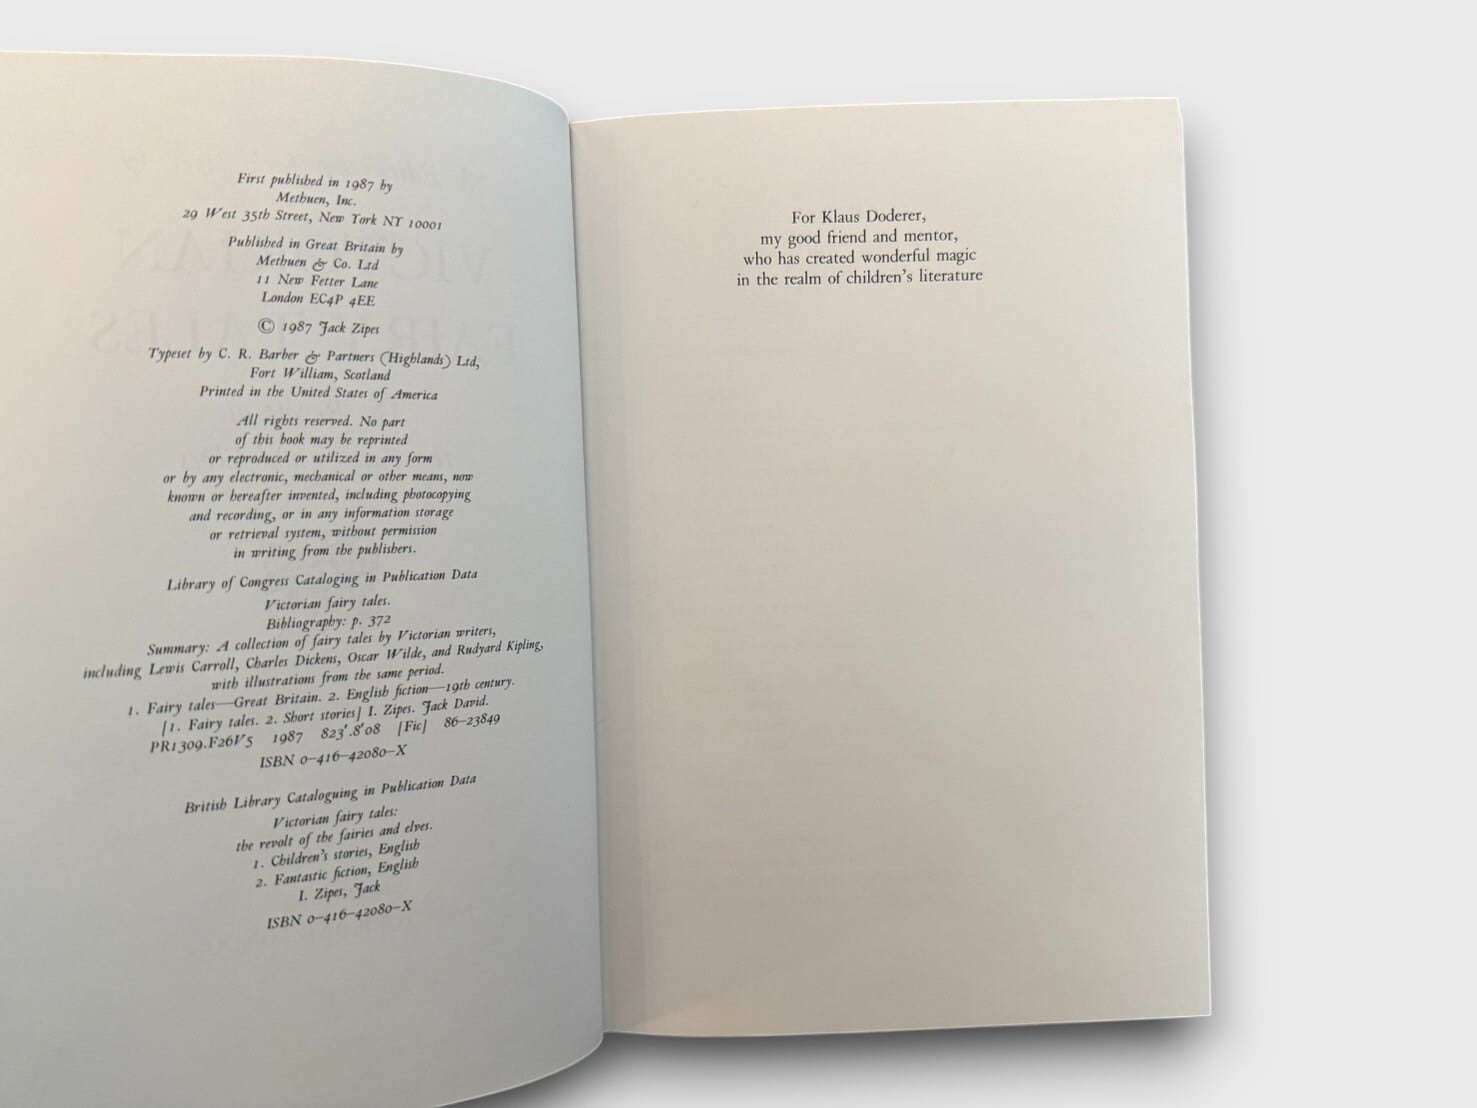 First published in 1987 by
Methuen, Inc.
29 West 35th Street, New York NY 10001
Published in Great Britain by
Methuen & Co. Ltd
11 New Fetter Lane
London EC4P 4EE
© 1987 Jack Zipes
Typeset by C. R. Barber & Partners (Highlands) Ltd,
Fort William, Scotland
Printed in the United States of America
All rights reserved. No part
of this book may be reprinted
or reproduced or utilized in any form
or by any electronic, mechanical or other means, now
known or hereafter invented, including photocopying
and recording, or in any information storage
or retrieval system, without permission
in writing from the publishers.
Library of Congress Cataloging in Publication Data
Victorian fairy tales.
Bibliography: p. 372
Summary: A collection of fairy tales by Victorian writers,
including Lewis Carroll, Charles Dickens, Oscar Wilde, and Rudyard Kipling,
with illustrations from the same period.
1. Fairy tales—Great Britain. 2. English fiction—19th century.
[1. Fairy tales. 2. Short stories] I. Zipes. Jack David.
PR1309.F26V5 1987 823'.8'08 [Fic] 86–23849
ISBN 0–416–42080–X
British Library Cataloguing in Publication Data
Victorian fairy tales:
the revolt of the fairies and elves.
1. Children's stories, English
2. Fantastic fiction, English
I. Zipes, Jack
ISBN 0–416–42080–X
For Klaus Doderer,
my good friend and mentor,
who has created wonderful magic
in the realm of children's literature